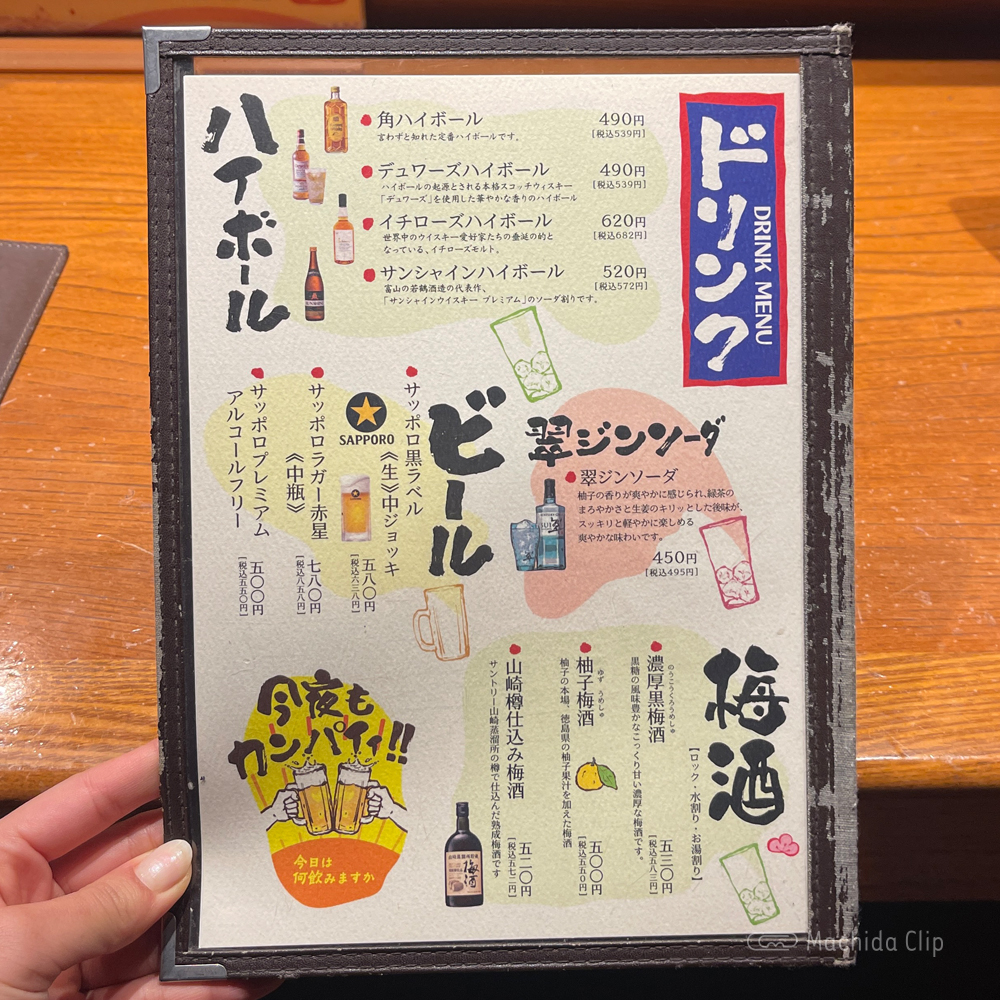 ドリンク
DRINK MENU
ハイボール
角ハイボール 490円
言わずと知れた定番ハイボールです。 [税込539円]
デュワーズハイボール 490円
ハイボールの起源とされる本格スコッチウィスキー [税込539円]
「デュワーズ」を使用した華やかな香りのハイボール
イチローズハイボール 620円
世界中のウイスキー愛好家たちの垂涎の的と [税込682円]
なっている、イチローズモルト。
サンシャインハイボール 520円
富山の若鶴酒造の代表作、 [税込572円]
「サンシャインウイスキー プレミアム」のソーダ割りです。
翠ジンソーダ
翠ジンソーダ
柚子の香りが爽やかに感じられ、緑茶の
まろやかさと生姜のキリッとした後味が、
スッキリと軽やかに楽しめる
爽やかな味わいです。
450円
[税込495円]
ビール
サッポロ黒ラベル
《生》中ジョッキ 五八〇円
[税込六三八円]
SAPPORO
サッポロラガー赤星
《中瓶》 七八〇円
[税込八五八円]
サッポロプレミアム
アルコールフリー 五〇〇円
[税込五五〇円]
梅酒
【ロック・水割り・お湯割り】
のうこうくろうめしゅ
濃厚黒梅酒 五三〇円
黒糖の風味豊かなこっくり甘い濃厚な梅酒です。 [税込五八三円]
ゆず うめしゅ
柚子梅酒 五〇〇円
柚子の本場、徳島県の柚子果汁を加えた梅酒 [税込五五〇円]
山崎樽仕込み梅酒 五二〇円
サントリー山崎蒸溜所の樽で仕込んだ熟成梅酒です [税込五七二円]
梅酒
今夜も
カンパイ!!
今日は
何飲みますか
Machida Clip